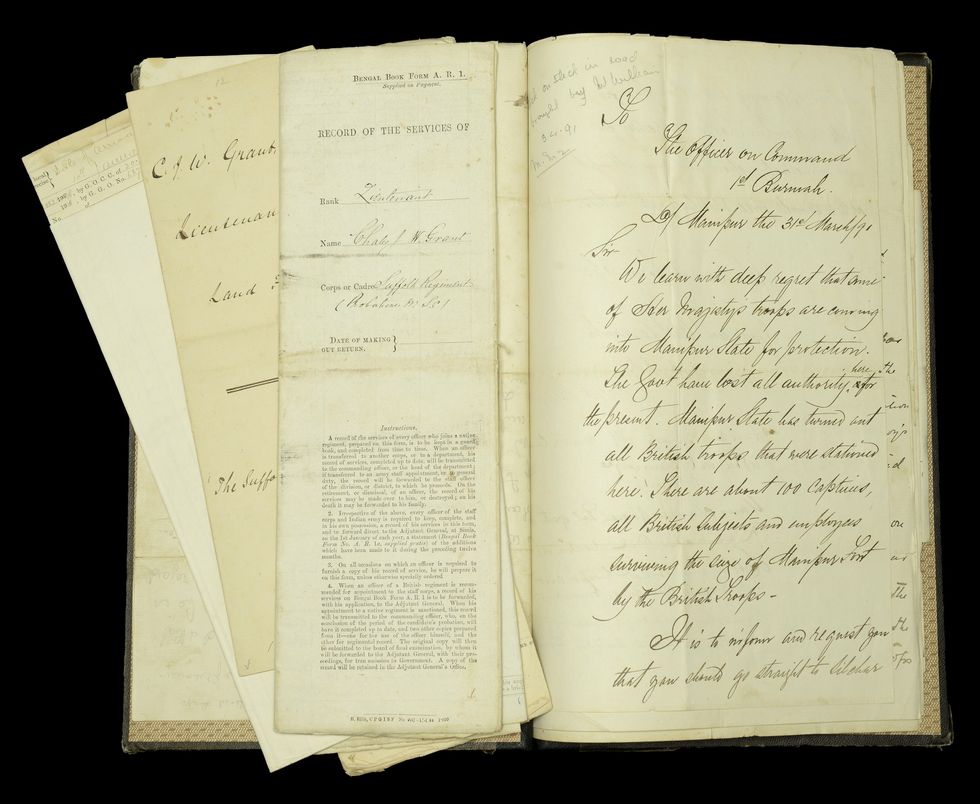 12
C. J. W. Grant
Lieutenan
Land
The Suffo
BENGAL BOOK FORM A. R. 1.
Supplied on Payment.
RECORD OF THE SERVICES OF
Rank Lieutenant
Name Charles J. W. Grant
Corps or Cadre Suffolk Regiment
DATE OF MAKING
OUT RETURN.
Instructions.
A record of the services of every officer who joins a native
regiment, prepared on this form, is to be kept in a guard
book, and completed from time to time. When an officer
is transferred to another corps, or to a department, his
record of services, completed up to date, will be transmitted
to the commanding officer, or the head of the department;
if transferred to an army staff appointment, or to general
duty, the record will be forwarded to the staff officer
of the division, or district, to which he proceeds. On the
retirement, or dismissal, of an officer, the record of his
services may be made over to him, or destroyed; on his
death it may be forwarded to his family.
2. Irrespective of the above, every officer of the staff
corps and Indian army is required to keep, complete, and
in his own possession, a record of his services in this form,
and to forward direct to the Adjutant General, at Simla,
on the 1st January of each year, a statement (Bengal Book
Form No. A. R. 1a, supplied gratis) of the additions
which have been made to it during the preceding twelve
months.
3. On all occasions on which an officer is required to
furnish a copy of his record of service, he will prepare it
on this form, unless otherwise specially ordered
4. When an officer of a British regiment is recom-
mended for appointment to the staff corps, a record of his
services on Bengal Book Form A. R. 1 is to be forwarded,
with his application, to the Adjutant General. When his
appointment to a native regiment is sanctioned, this record
will be transmitted to the commanding officer, who, on the
conclusion of the period of the candidate's probation, will
have it completed up to date, and two other copies prepared
from it—one for the use of the officer himself, and the
other for regimental record. The original copy will then
be submitted to the board of final examination, by whom it
will be forwarded to the Adjutant General, with their pro-
ceedings, for transmission to Government. A copy of the
record will be retained in the Adjutant General's Office.
on stick in road
brought by
3.4.91
To
The Officer on Command
1st Burmah.
D/ Manipur the 31st March/91
Sir
We learn with deep regret that some
of Her Majesty's troops are coming
into Manipur State for protection.
The Govt have lost all authority here for
the present. Manipur State has turned out
all British troops that were stationed
here. There are about 100 Captives,
all British Subjects and employees
surviving the siege of Manipur Fort
by the British Troops -
It is to inform and request you
that you should go straight to Silchar